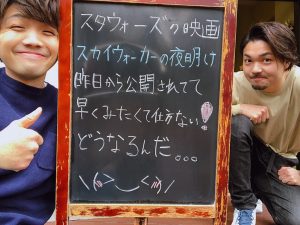 スタウォーズの映画
スカイウォーカーの夜明け
昨日から公開されてて
早くみたくて仕方ない!
どうなるんだ。。。